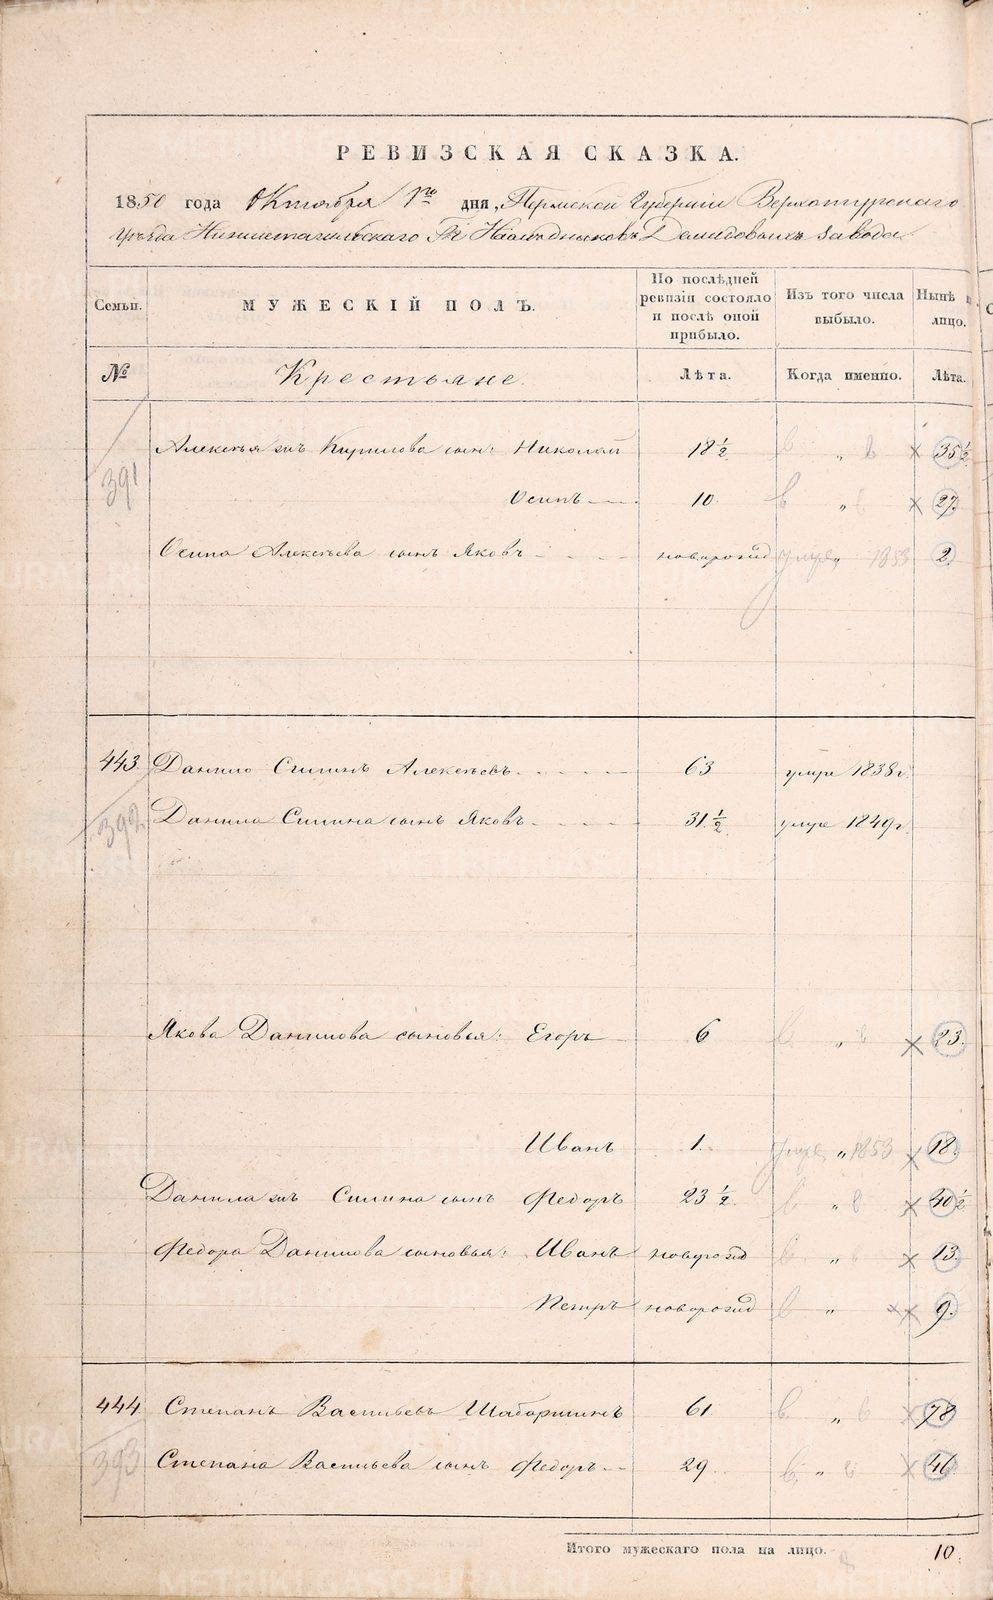 РЕВИЗСКАЯ СКАЗКА.
1850 года Октября 1го дня, Пермской Губернии Верхотурскаго
Уѣзда Нижнетагильскаго Гг. Наслѣдниковъ Демидовыхъ завода
Семьи. МУЖЕСКІЙ ПОЛЪ. По послѣдней ревизіи состояло и послѣ оной прибыло. Изъ того числа выбыло. Нынѣ на лицо.
№ Крестьяне. Лѣта. Когда именно. Лѣта.
391 Алексѣя Кирилова сын: Николай 18½ " 35½
Осипъ 10 " 27.
Осипа Алексѣева сынъ Яковъ новорожд умре " 1853 2
443. Данило Силинъ Алексѣевъ 63 умре 1838г.
392 Данила Силина сынъ Яковъ 31½ умре 1849г.
Якова Данилова сыновья: Егоръ 6 " 23.
Иванъ 1. умре " 1853 18.
Данила Силина сынъ Федоръ 23½ " 40½
Федора Данилова сыновья: Иванъ новорожд " 13.
Петръ новорожд " 9.
444 Степанъ Васильевъ Шабаршинъ 61 " 78
393 Степана Васильева сынъ Федоръ 29 " 46
Итого мужескаго пола на лицо. 10
METRIKI.GASO-URAL.RU